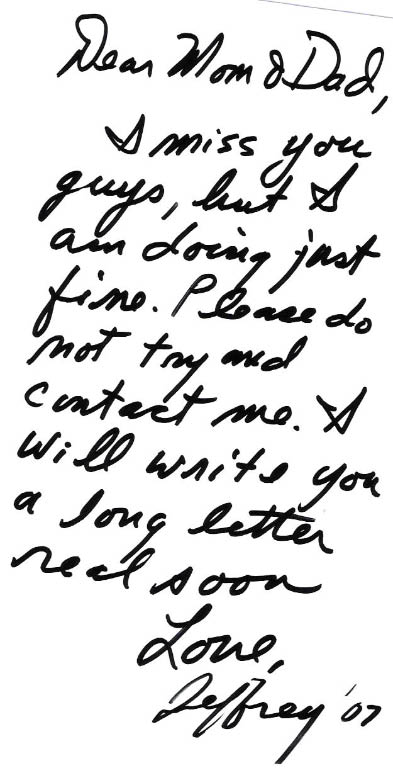 Dear Mom & Dad,
I miss you
guys, but I
am doing just
fine. Please do
not try and
contact me. I
will write you
a long letter
real soon
Love,
Jeffrey '07